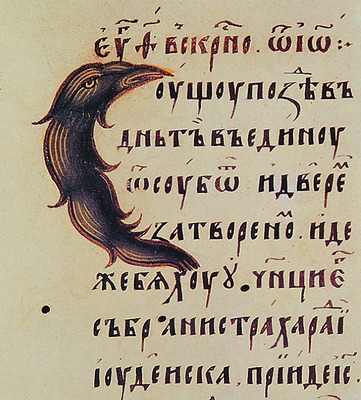 еѵⷢ҇а вⸯскрⷭ҇но. ѿ іѡⷩ҇ :·
Соущоу поздѣ въ
днь тъ въ единоу
ѿ соубѿ и двереⷨ
затвореноⷨ. иде
же бѧхоу ꙋчн҃ци еⷢ
събрани страха раⷣі
іоудеиска, прїиде іс҃.